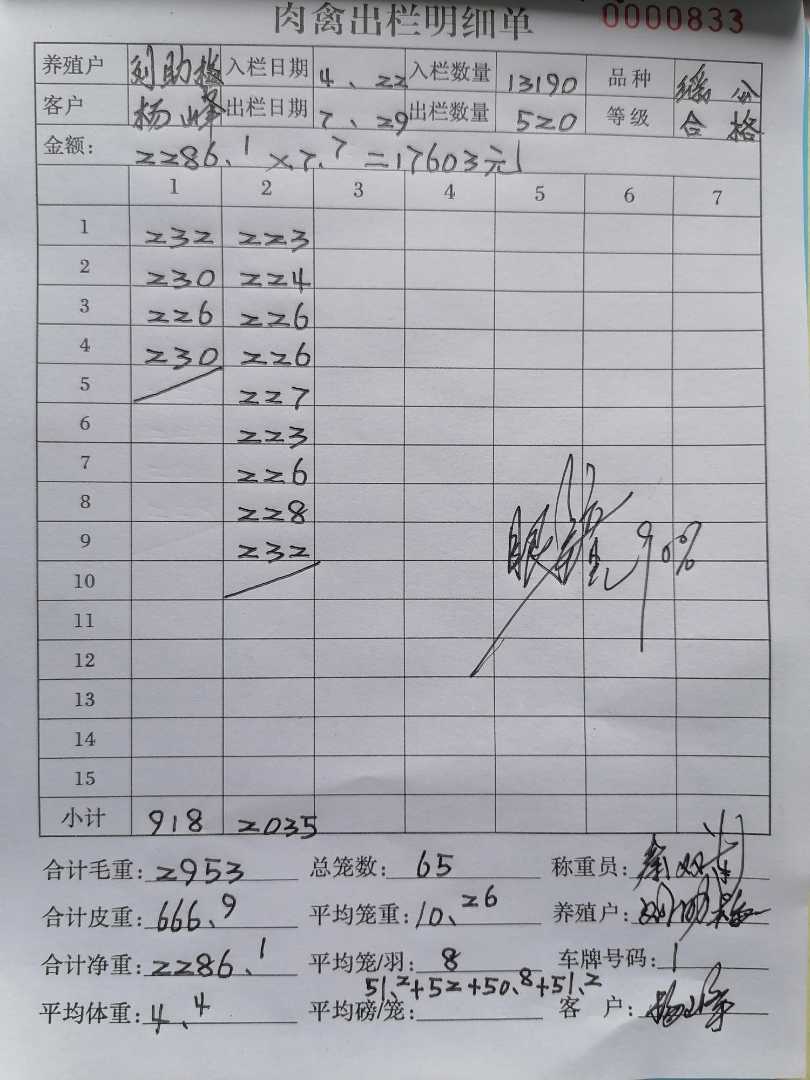 肉禽出栏明细单 0000833
养殖户 刘助格 入栏日期 4、22 入栏数量 13190 品种
客户 杨峰 出栏日期 7、29 出栏数量 520 等级 合格
金额: 2286.1 ×7.7 =17603元
1 2 3 4 5 6 7
1 232 223
2 230 224
3 226 226
4 230 226
5 227
6 223
7 226
8 228
9 232
90%
10
11
12
13
14
15
小计 918 2035
合计毛重: 2953 总笼数: 65 称重员:
合计皮重: 666.9 平均笼重: 10.26 养殖户:
合计净重: 2286.1 平均笼/羽: 8 车牌号码: 1
51.2+52+50.8+51.2
平均体重: 4.4 平均磅/笼: 客 户: 杨峰